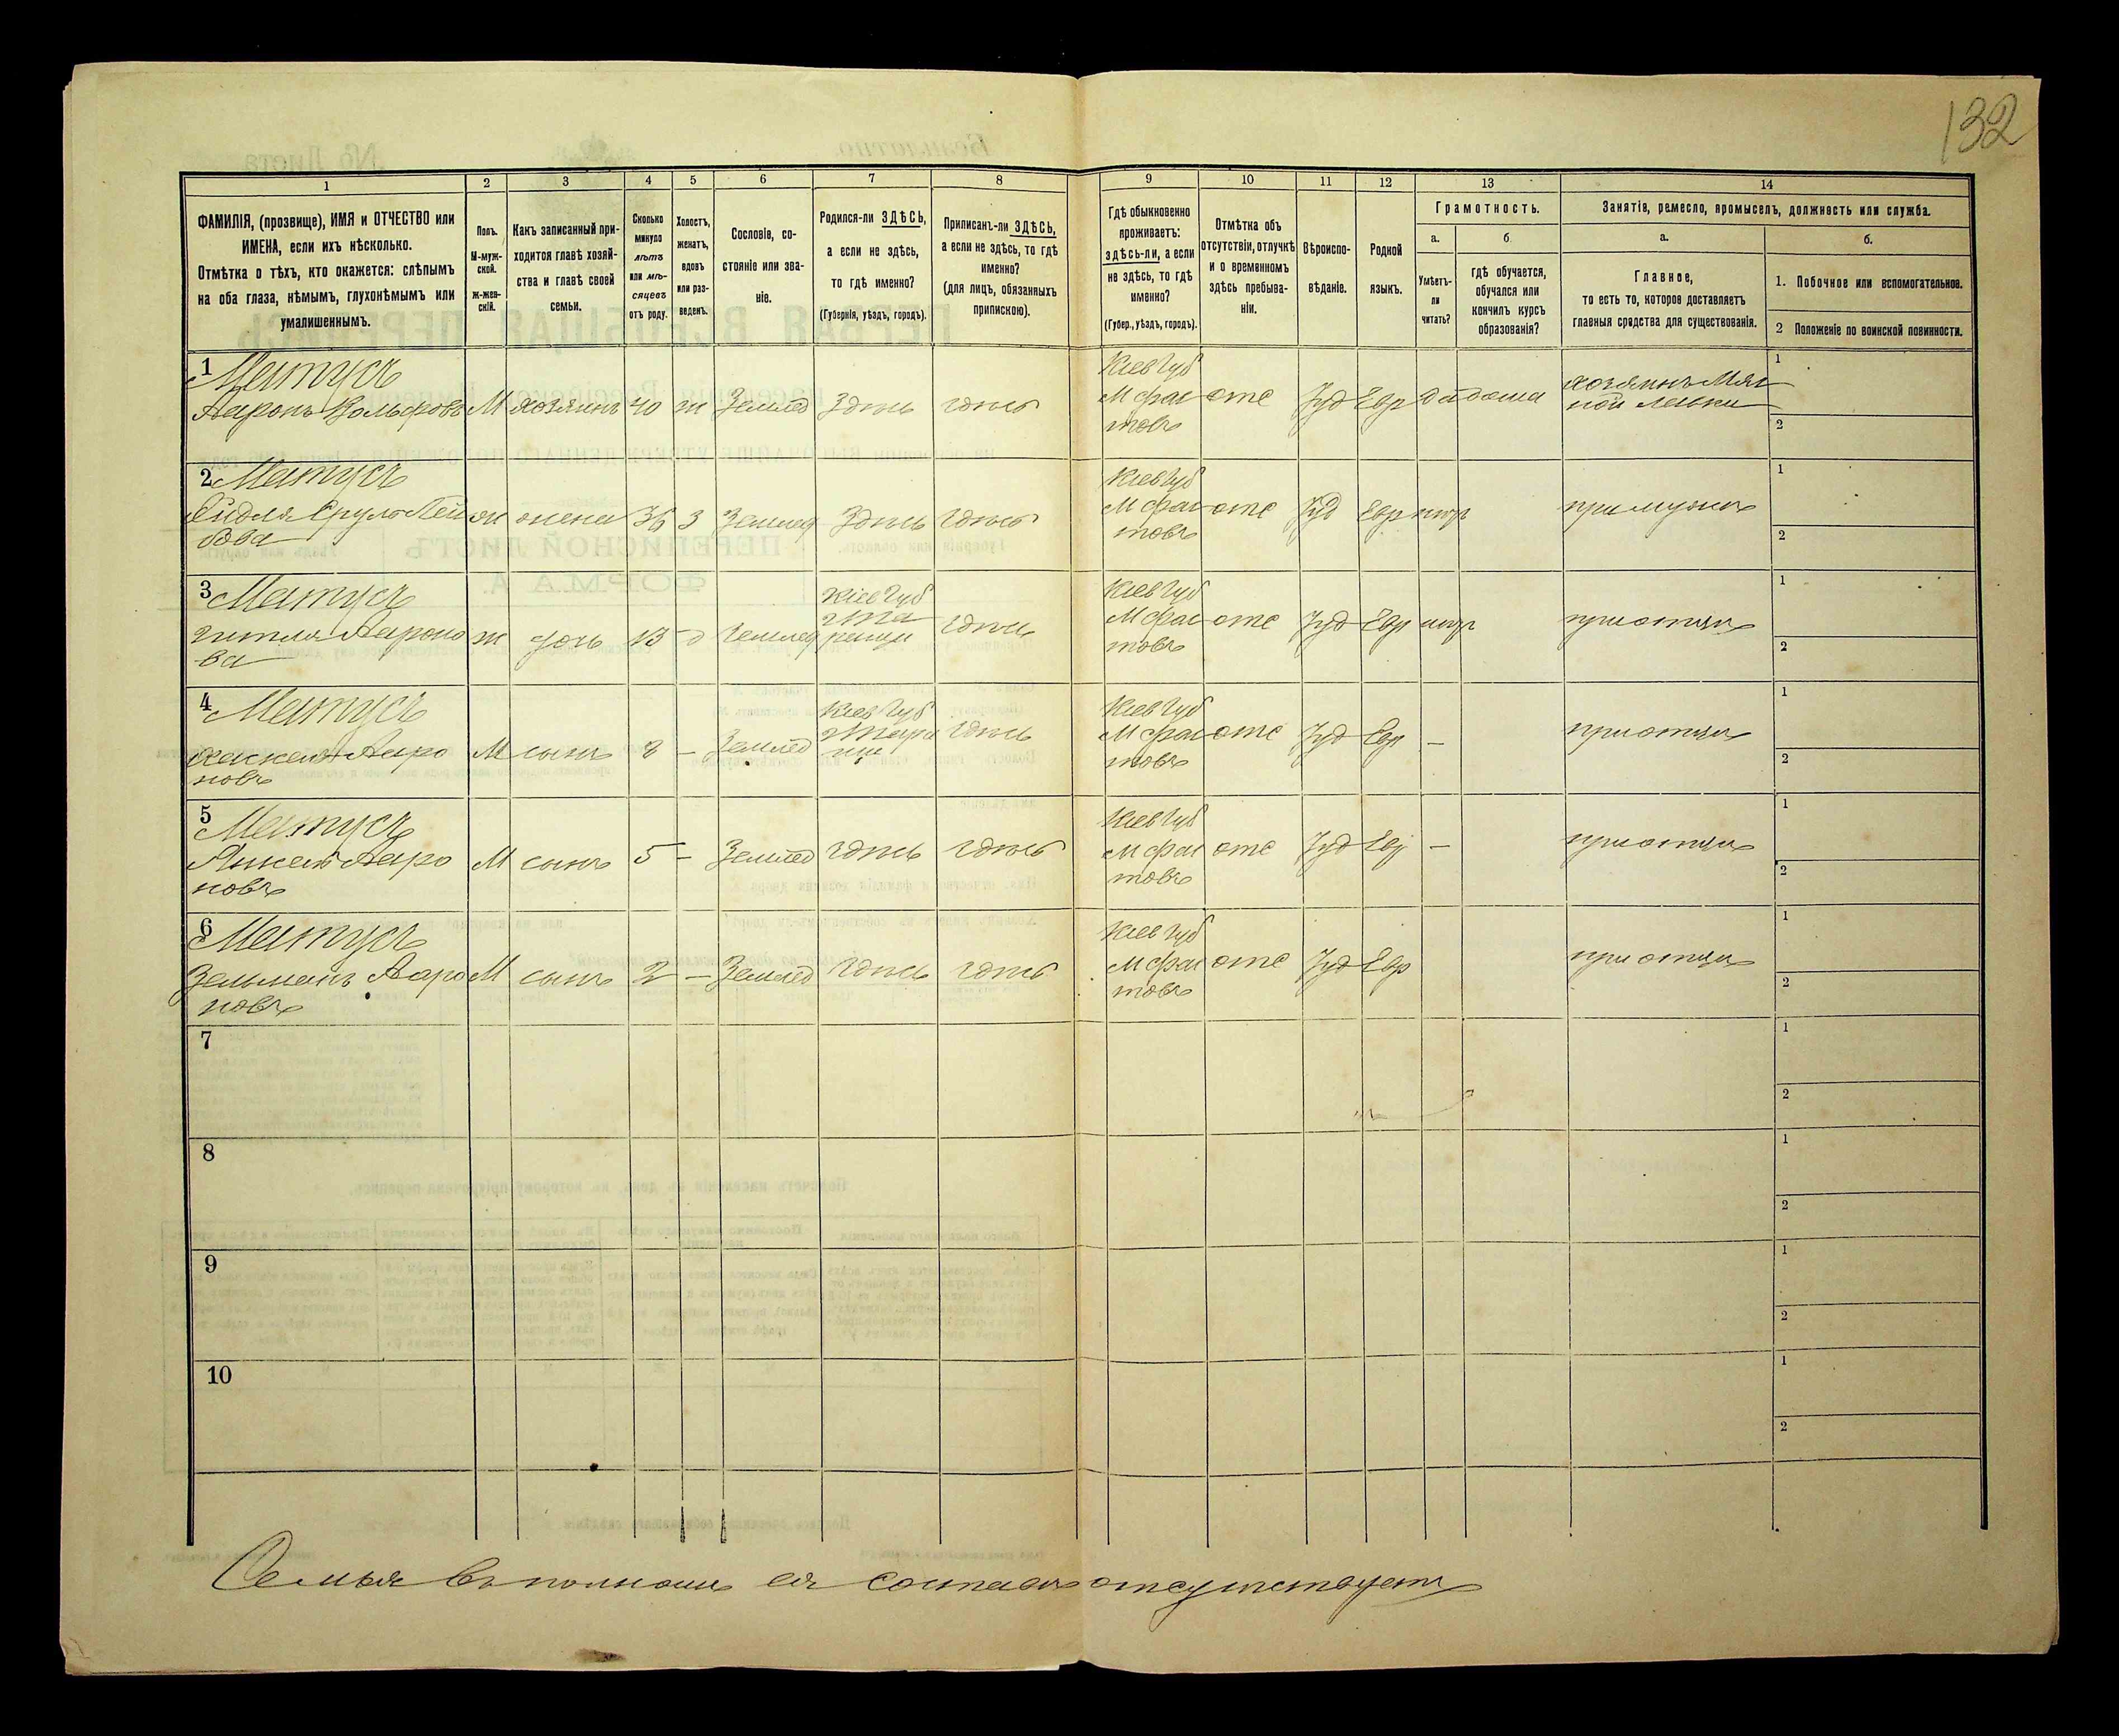 132
1 2 3 4 5 6 7 8 9 10 11 12 13 14
ФАМИЛІЯ, (прозвище), ИМЯ и ОТЧЕСТВО или
ИМЕНА, если ихъ нѣсколько.
Отмѣтка о тѣхъ, кто окажется: слѣпымъ
на оба глаза, нѣмымъ, глухонѣмымъ или
умалишеннымъ.
Полъ.
М-муж-
ской.
ж-жен-
скій.
Какъ записанный при-
ходится главѣ хозяй-
ства и главѣ своей
семьи.
Сколько
минуло
лѣтъ
или мѣ-
сяцевъ
отъ роду.
Холостъ,
женатъ,
вдовъ
или раз-
веденъ.
Сословіе, со-
стояніе или зва-
ніе.
Родился-ли ЗДѢСЬ,
а если не здѣсь,
то гдѣ именно?
(Губернія, уѣздъ, городъ).
Приписанъ-ли ЗДѢСЬ,
а если не здѣсь, то гдѣ
именно?
(для лицъ, обязанныхъ
припискою).
Гдѣ обыкновенно
проживаетъ:
здѣсь-ли, а если
не здѣсь, то гдѣ
именно?
(Губер., уѣздъ, городъ).
Отмѣтка объ
отсутствіи, отлучкѣ
и о временномъ
здѣсь пребыва-
ніи.
Вѣроиспо-
вѣданіе.
Родной
языкъ.
Грамотность.
а.
Умѣетъ-
ли
читать?
б
гдѣ обучается,
обучался или
кончилъ курсъ
образованія?
Занятія, ремесло, промыселъ, должность или служба.
а.
Главное,
то есть то, которое доставляетъ
главныя средства для существованія.
б.
1. Побочное или вспомогательное.
2 Положеніе по воинской повинности.
1 Матусъ
Ааронъ Вольфовъ М хозяинъ 40 ж Землед Здѣсь здѣсь
Кіев Губ
М Фас
товъ
отс Іуд Евр да дома
хозяинъ Мяс
ной лавки
1
2
2 Матусъ
Сруль Лей
бова ж жена 36 З Землед Здѣсь здѣсь
Кіев Губ
М Фас
товъ
отс Іуд Евр нѣтъ при мужѣ
1
2
3 Матусъ
Гитля Аароно
ва ж дочь 13 Землед
Кіев Губ
здѣсь
Кіев Губ
М Фас
товъ
отс Іуд Евр нѣтъ при отцѣ
1
2
4 Матусъ
Ааро
новъ М сынъ 8 – Землед
Кіев Губ
здѣсь
Кіев Губ
М Фас
товъ
отс Іуд Евр – при отцѣ
1
2
5 Матусъ
Янкель Ааро
новъ М сынъ 5 – Землед здѣсь здѣсь
Кіев Губ
М Фас
товъ
отс Іуд Евр – при отцѣ
1
2
6 Матусъ
Зельманъ Ааро
новъ М сынъ 2 – Землед здѣсь здѣсь
Кіев Губ
М Фас
товъ
отс Іуд Евр при отцѣ
1
2
7
1
2
8
1
2
9
1
2
10
1
2
Семья въ полномъ ея составѣ отсутствуетъ